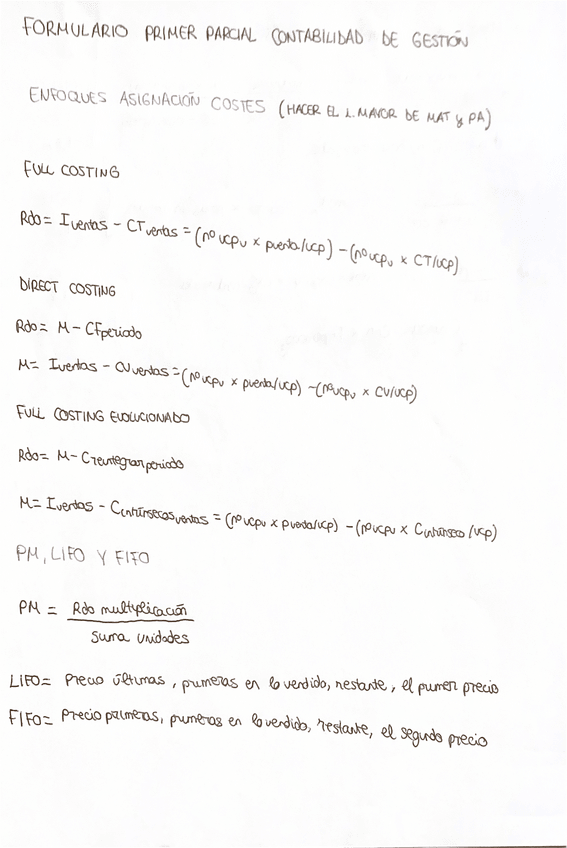 FORMULARIO PRIMER PARCIAL CONTABILIDAD DE GESTIÓN
ENFOQUES ASIGNACIÓN COSTES (HACER EL L. MAYOR DE MAT y PA)
FULL COSTING
Rdo = Iventas - CTventas = (nº ucpv x pventa/ucp) - (nº ucpv x CT/ucp)
DIRECT COSTING
Rdo = M - CFperiodo
M = Iventas - CVventas = (nº ucpv x pventa/ucp) - (nº ucpv x CV/ucp)
FULL COSTING EVOLUCIONADO
Rdo = M - Creintegrar periodo
M = Iventas - Cintrínsecos ventas = (nº ucpv x pventa/ucp) - (nº ucpv x Cintrínseco/ucp)
PM, LIFO Y FIFO
PM = Rdo multiplicación
Suma unidades
LIFO = Precio últimas, primeras en lo vendido, restante, el primer precio
FIFO = Precio primeras, primeras en lo vendido, restante, el segundo precio